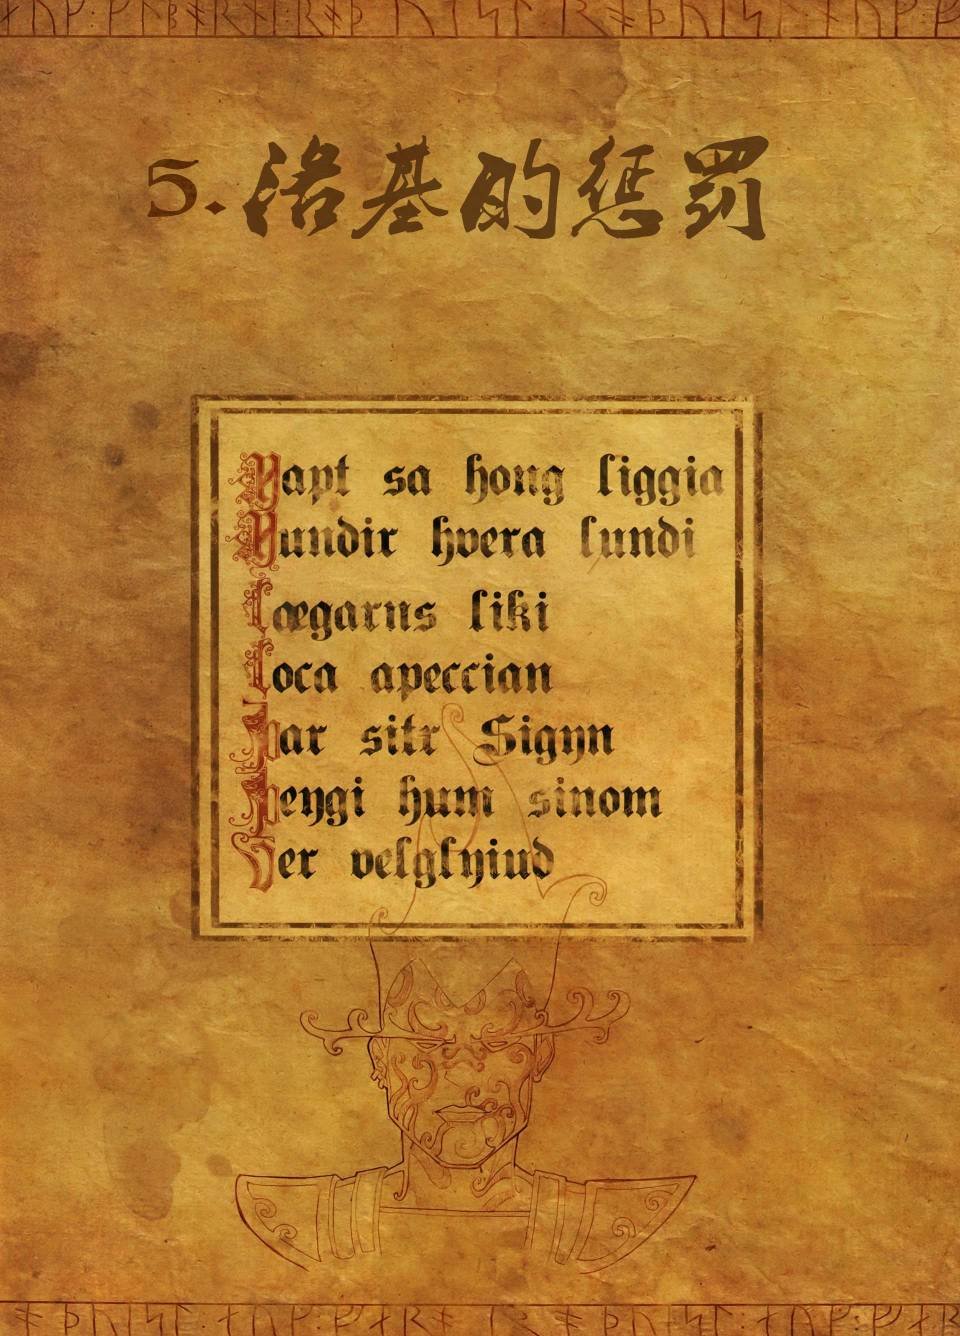 5. 洛基的惩罚
Yapt sa hong liggia
Yundir hvera lundi
Loegarns liki
Loca apeccian
Þar sitr Sigyn
Þeygi hum sinom
Ver velglyiud